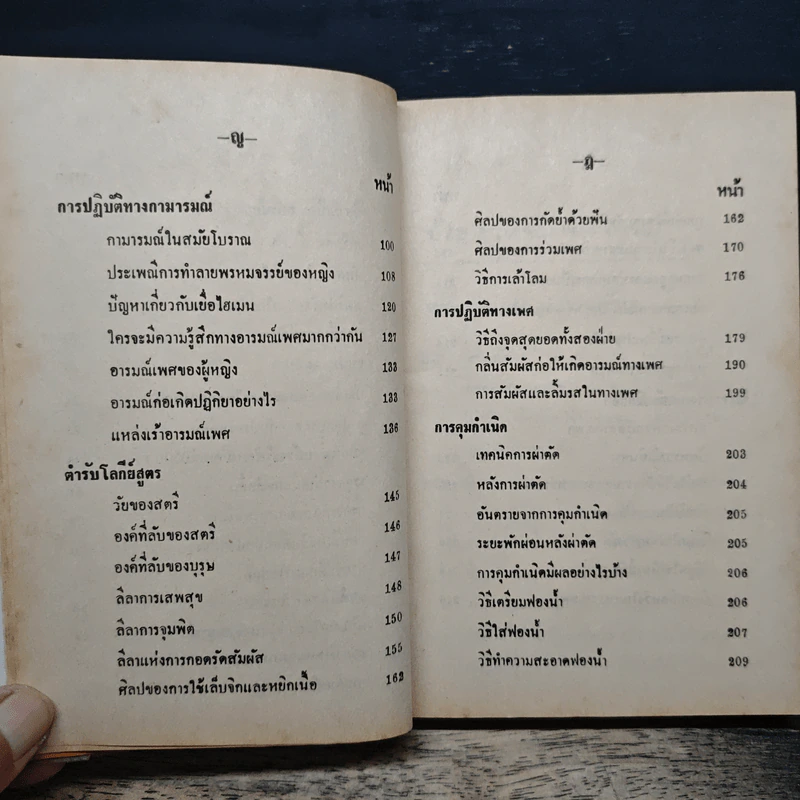 —ญ—
หน้า
การปฏิบัติทางกามารมณ์
กามารมณ์ในสมัยโบราณ 100
ประเพณีการทำลายพรหมจรรย์ของหญิง 108
ปัญหาเกี่ยวกับเยื่อไฮเมน 120
ใครจะมีความรู้สึกทางอารมณ์เพศมากกว่ากัน 127
อารมณ์เพศของผู้หญิง 133
อารมณ์ก่อเกิดปฏิกิยาอย่างไร 133
แหล่งเร้าอารมณ์เพศ 136
ตำรับโลกีย์สูตร
วัยของสตรี 145
องค์ที่ลับของสตรี 146
องค์ที่ลับของบุรุษ 147
ลีลาการเสพสุข 148
ลีลาการจุมพิต 150
ลีลาแห่งการกอดรัดสัมผัส 155
ศิลปของการใช้เล็บจิกและหยิกเนื้อ 162
—ฎ—
หน้า
ศิลปของการกัดย้ำด้วยฟัน 162
ศิลปของการร่วมเพศ 170
วิธีการเล้าโลม 176
การปฏิบัติทางเพศ
วิธีถึงจุดสุดยอดทั้งสองฝ่าย 179
กลิ่นสัมผัสก่อให้เกิดอารมณ์ทางเพศ 190
การสัมผัสและลิ้มรสในทางเพศ 199
การคุมกำเนิด
เทคนิคการผ่าตัด 203
หลังการผ่าตัด 204
อันตรายจากการคุมกำเนิด 205
ระยะพักผ่อนหลังผ่าตัด 205
การคุมกำเนิดมีผลอย่างไรบ้าง 206
วิธีเตรียมฟองน้ำ 206
วิธีใส่ฟองน้ำ 207
วิธีทำความสะอาดฟองน้ำ 209